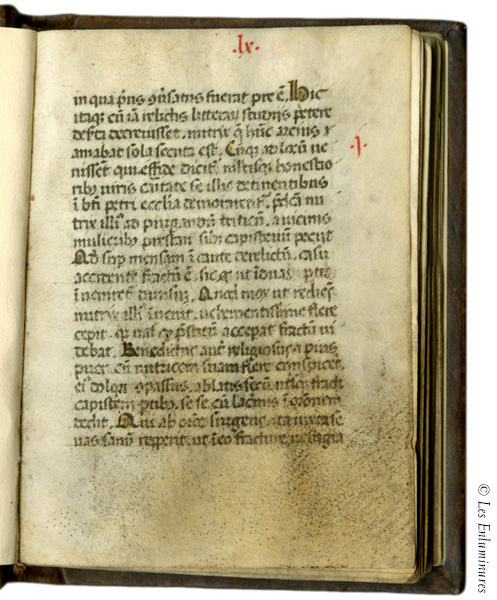 .lx.
in qua p̃us ꝯ̃satus fuerat pre ẽ. Hic
itaqꝫ cũ iã relictis litteraꝝ studijs petere
def̃ta decreuisset. nutrix q̃ hũc arcius
amabat sola secuta est. Cũqꝫ ad locũ ue
.j.
nissent qui effide dicit̃. multisqꝫ honestio
ribꝫ uiris caritate se illic detinentibus
ĩ bt̃i petri ecclia demorarent̃. p̃dca nu
trix illiꝰ ad purgandũ triticũ. a uicinis
mulieribꝫ prestari sibi capisteriũ petijt
sup mensam ĩcaute derelictũ. casu
accidente fractũ ẽ. sic ut ĩ duas ptes
ĩueniret̃ diuisuꝫ. mox ut rediẽs
nutrix illiꝰ ĩuenit. uehementissime flere
cepit. uas qꝫ p̃stitũ acceperat fractũ ui
debat. Benedictus aut̃ religiosus ⁊ pius
puer cũ nutricem suam flere conspiceret.
eiꝰ dolori ꝯpassus. ablatis secũ utriusqꝫ fracti
capisterij ptibꝫ. se se cũ lac̃mis ĩ oronem
dedit. Qui ab orõe surgens. ita iuxta se
uas sanũ repperit. ut ĩ eo fracture uestigia
© Les Enluminures